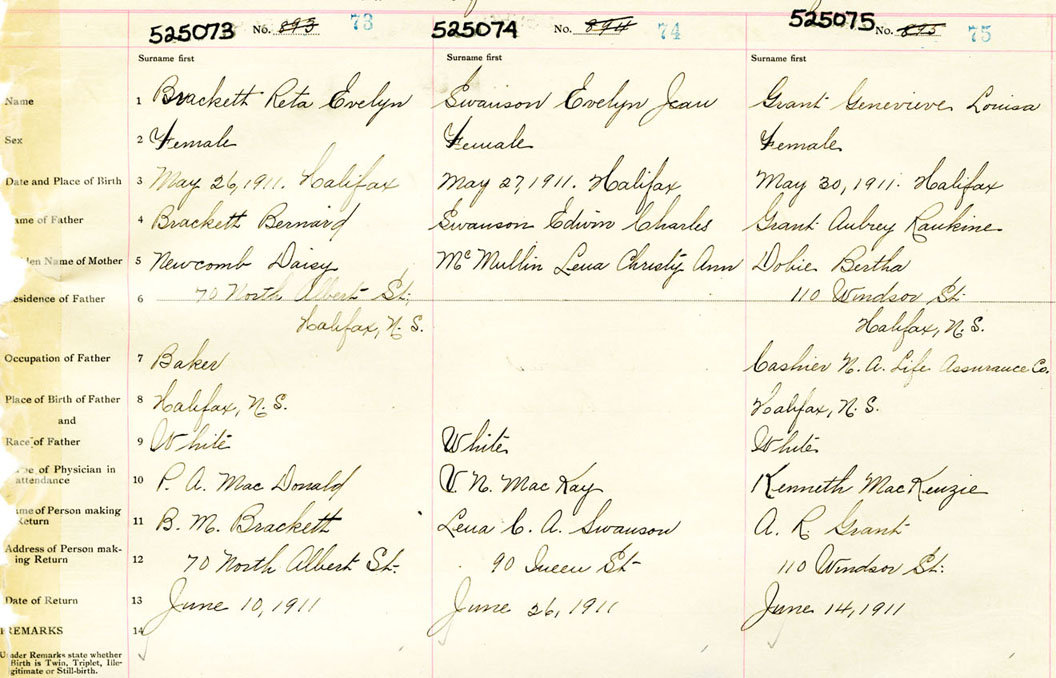 525073 No. 893 73 525074 No. 894 74 525075 No. 895 75
Surname first Surname first Surname first
Name 1 Brackett Reta Evelyn Swanson Evelyn Jean Grant Genevieve Louisa
Sex 2 Female Female Female
Date and Place of Birth 3 May 26, 1911. Halifax May 27, 1911. Halifax May 30, 1911. Halifax
ame of Father 4 Brackett Bernard Swanson Edwin Charles Grant Aubrey Rankine
den Name of Mother 5 Newcomb Daisy McMullin Lena Christy Ann Dobie Bertha
esidence of Father 6 70 North Albert St. 110 Windsor St.
Halifax, N.S. Halifax, N.S.
Occupation of Father 7 Baker Cashier N. A. Life Assurance Co.
Place of Birth of Father 8 Halifax, N.S. Halifax, N.S.
and
Race of Father 9 White White White
e of Physician in
attendance 10 P. A. Mac Donald V. N. MacKay Kenneth MacKenzie
ame of Person making
Return 11 B. M. Brackett Lena C. A. Swanson A. R. Grant
Address of Person mak-
ing Return 12 70 North Albert St. 90 Queen St 110 Windsor St.
Date of Return 13 June 10, 1911 June 26, 1911 June 14, 1911
REMARKS 14
Under Remarks state whether
Birth is Twin, Triplet, Ille-
gitimate or Still-birth.